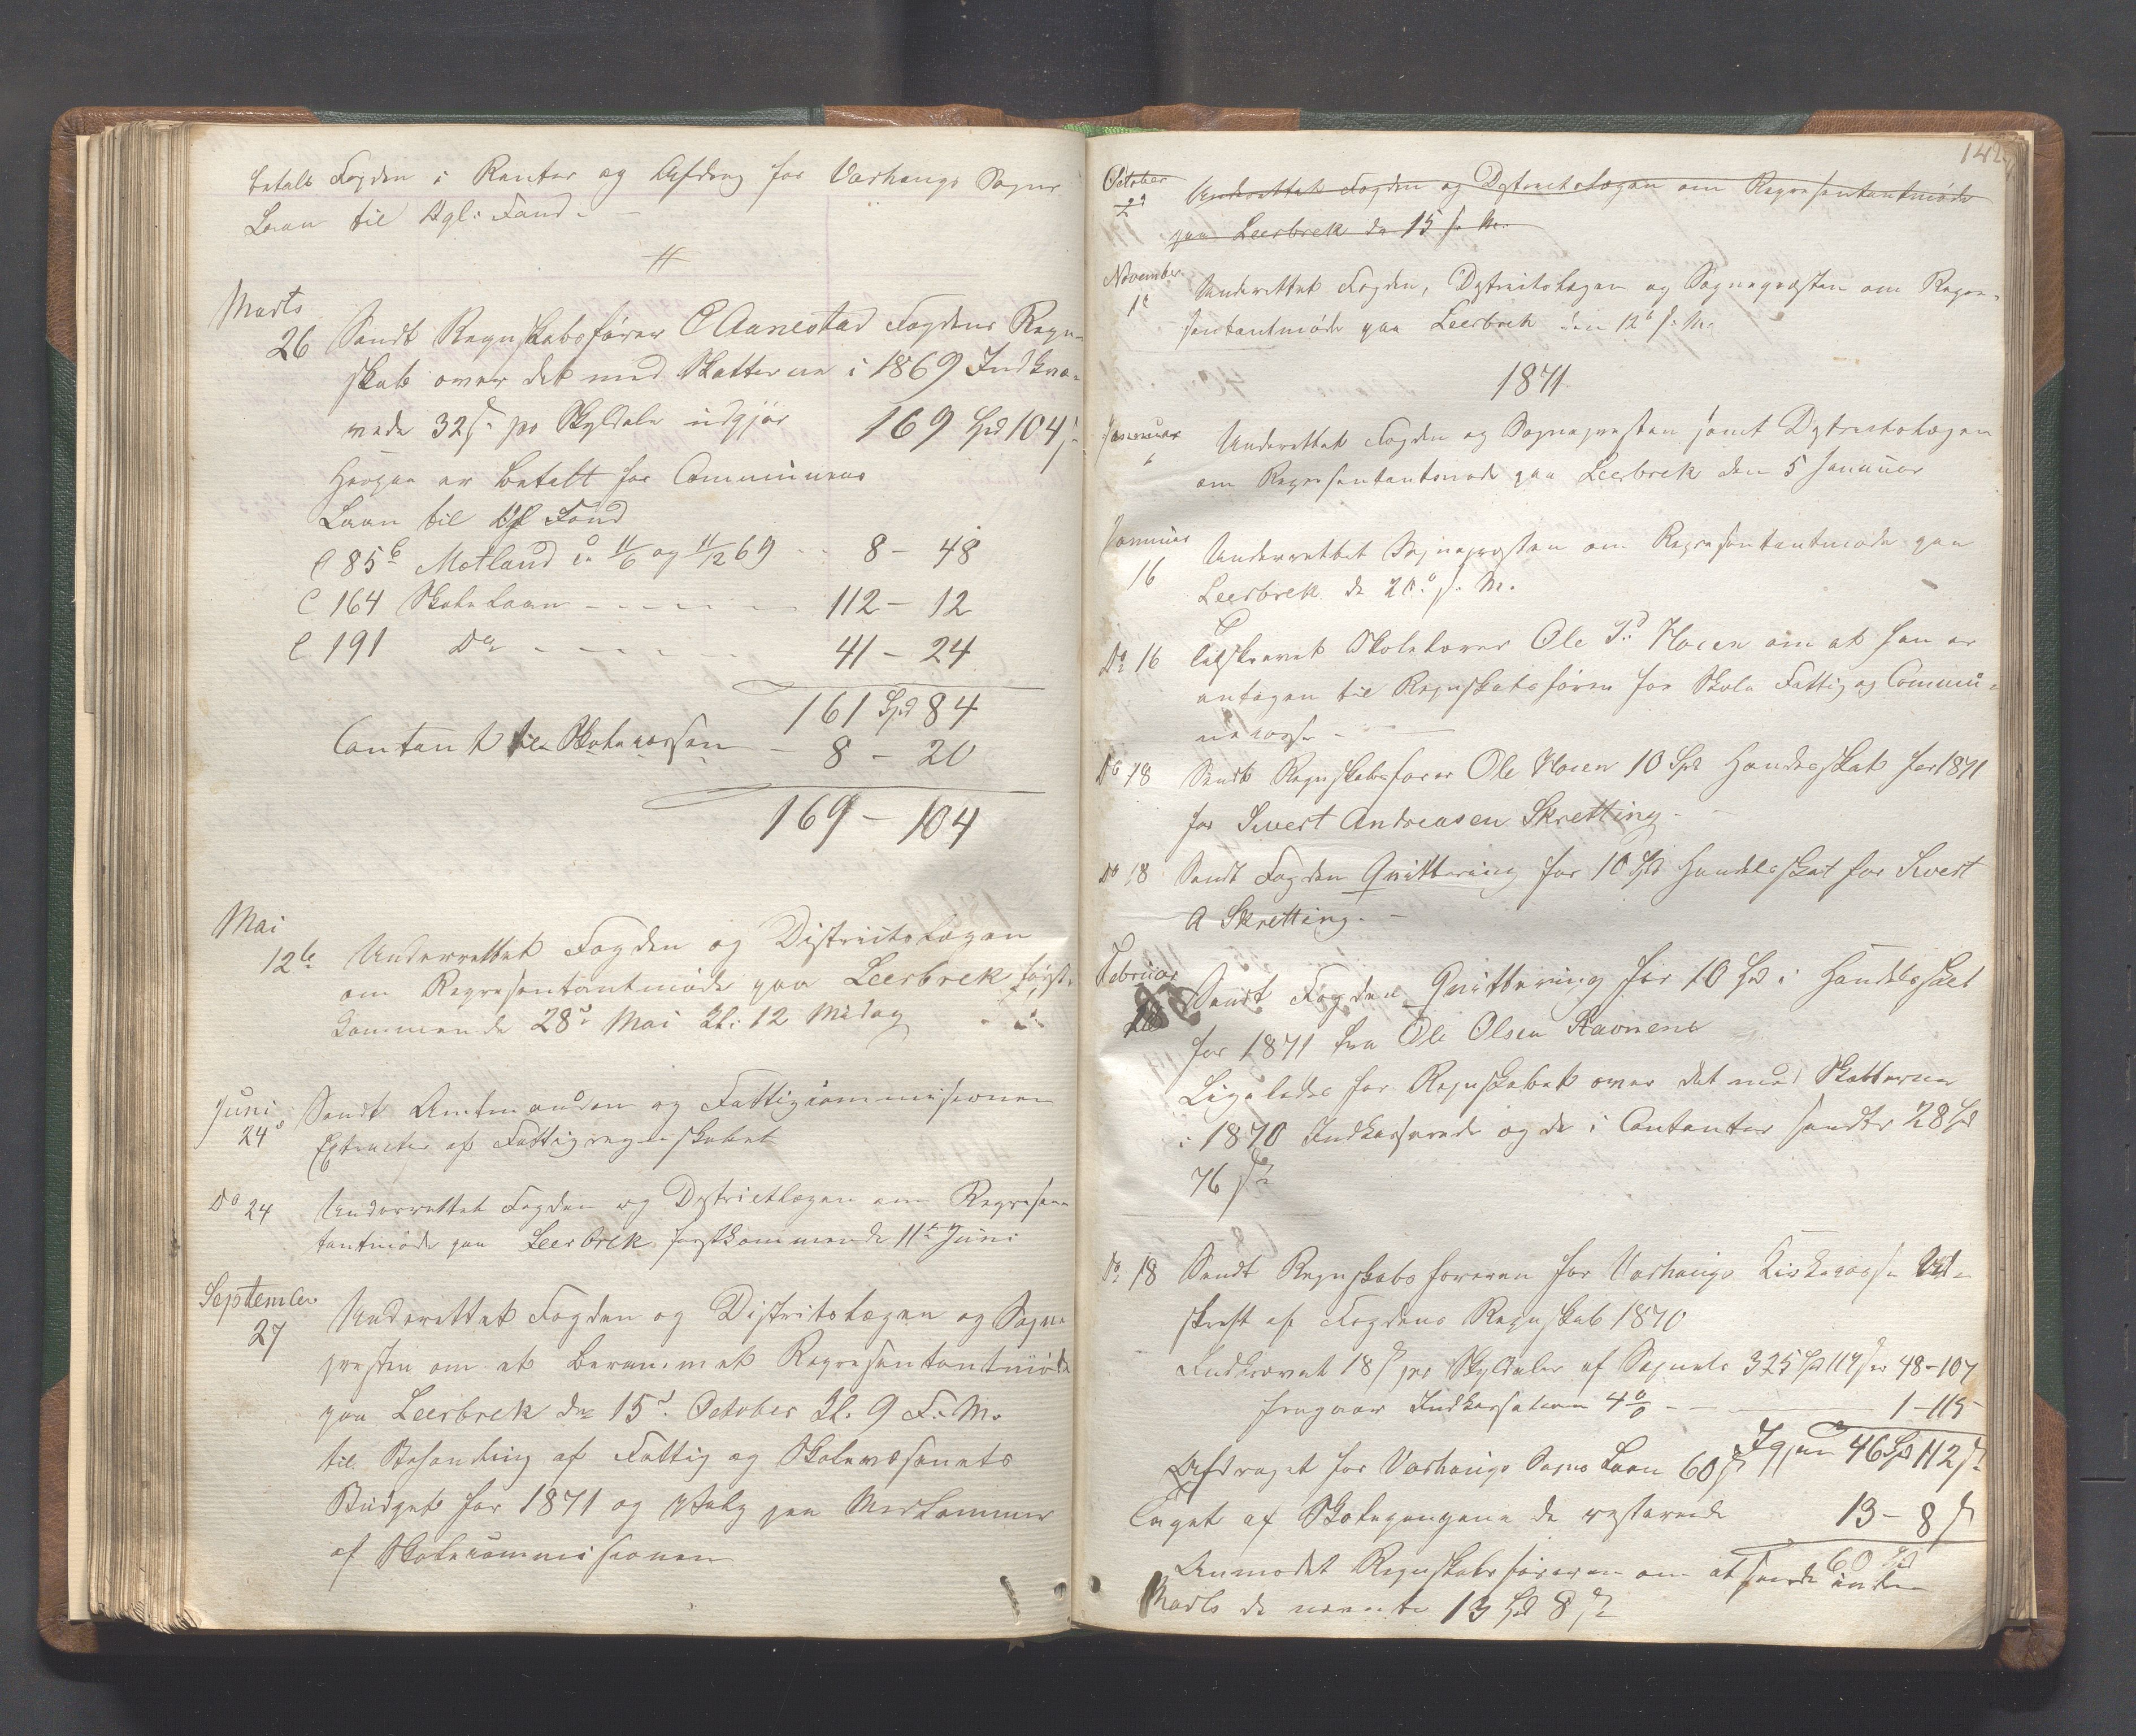 betalt Fogden i Renter og Afdrag for Varhaugs Sogns
Laan til Opl: Fond. –
Marts
26 Sendt Regnskabsfører C Aanestad Fogdens Regn-
skab over det med Skatterne i 1869 Indkræ-
vede 32 s pr Skyldaler udgjør 169 Spd 104 s
Herpaa er betalt for Communens
Laan til Opl Fond
C 85 b Motland 11/6 og 11/12 69 -- 8 – 48
C 164 Skolelaan ----- 112 – 12
C 191 Do ----- 41 – 24
161 Spd 84
Contant til Skolecassen – 8 – 20
169 – 104
Mai
12te Underrettet Fogden og Districtslægen
om Repræsentantmøde paa Leerbrek først-
kommende 28de Mai Kl: 12 Middag
Juni
24de Sendt Amtmanden og Fattigcommisionen
Extracter af Fattigregnskabet
Do 24 Underrettet Fogden og Dystrictlægen om Repræsen
tantmøde paa Leerbrek førstkommende 11te Juni
September
27 Underrettet Fogden og Distritslægen og Sogne
presten om et berammet Repræsentantmøde
paa Leerbrek den 15de October Kl. 9 F. M.
til Behandling af Fattig og Skolevæsenets
Budget for 1871 og Valg paa Medlemmer
af Skolecommisionen
142
October
29 Underrettet Fogden og Dystrictslægen om Repræsentantmøde
paa Leerbrek d. 15 f. M.
November
1te Underrettet Fogden, Dystrictslægen og Sognepræsten om Repræ-
sentantmøde paa Leerbrek den 12te f. M.
1871
Januar
Underrettet Fogden og Sognepresten samt Dystrictslægen
om Repræsentantmøde paa Leerbrek den 5 Januar
Januar
16 Underrettet Sognepresten om Repræsentantmøde paa
Leerbrek d. 20de f. M.
Do 16 Tilskrevet Skolelærer Ole Hoien om at han er
antagen til Regnskabsfører for Skole Fattig og Commu-
necasse –
Do 18 Sendt Regnskabsfører Ole Hoien 10 Spd Handelsskat for 1871
for Sivert Andreasen Skretting. –
Do 18 Sendt Fogden Qvittering for 10 Spd Handelsskat for Sivert
A Skretting. –
Februar
Sendt Fogden Qvittering for 10 Spd i Handelsskat
for 1871 fra Ole Olsen Ravnene
Ligeledes for Regnskabet over det med Skatterne
i 1870 Indkasserede og de i Contanter sendte 28 Spd
76 s
Do 18 Sendt Regnskabsføreren for Varhaugs Kirkecasse Ud-
skrift af Fogdens Regnskab 1870
Indkrævet 18 s pr Skyldaler af Sognets 325 Spd 114 s er 48 – 107
fragaar Indkassation 4 % – 1 – 115
Igjen 46 Spd 112 s
Afdraget for Varhaugs Sogns Laan 60 Spd
taget af Skolepengene de resterende 13 – 8 s
60 Spd
Anmodet Regnskabsføreren om at sende inden
Marts de nævnte 13 Spd 8 s